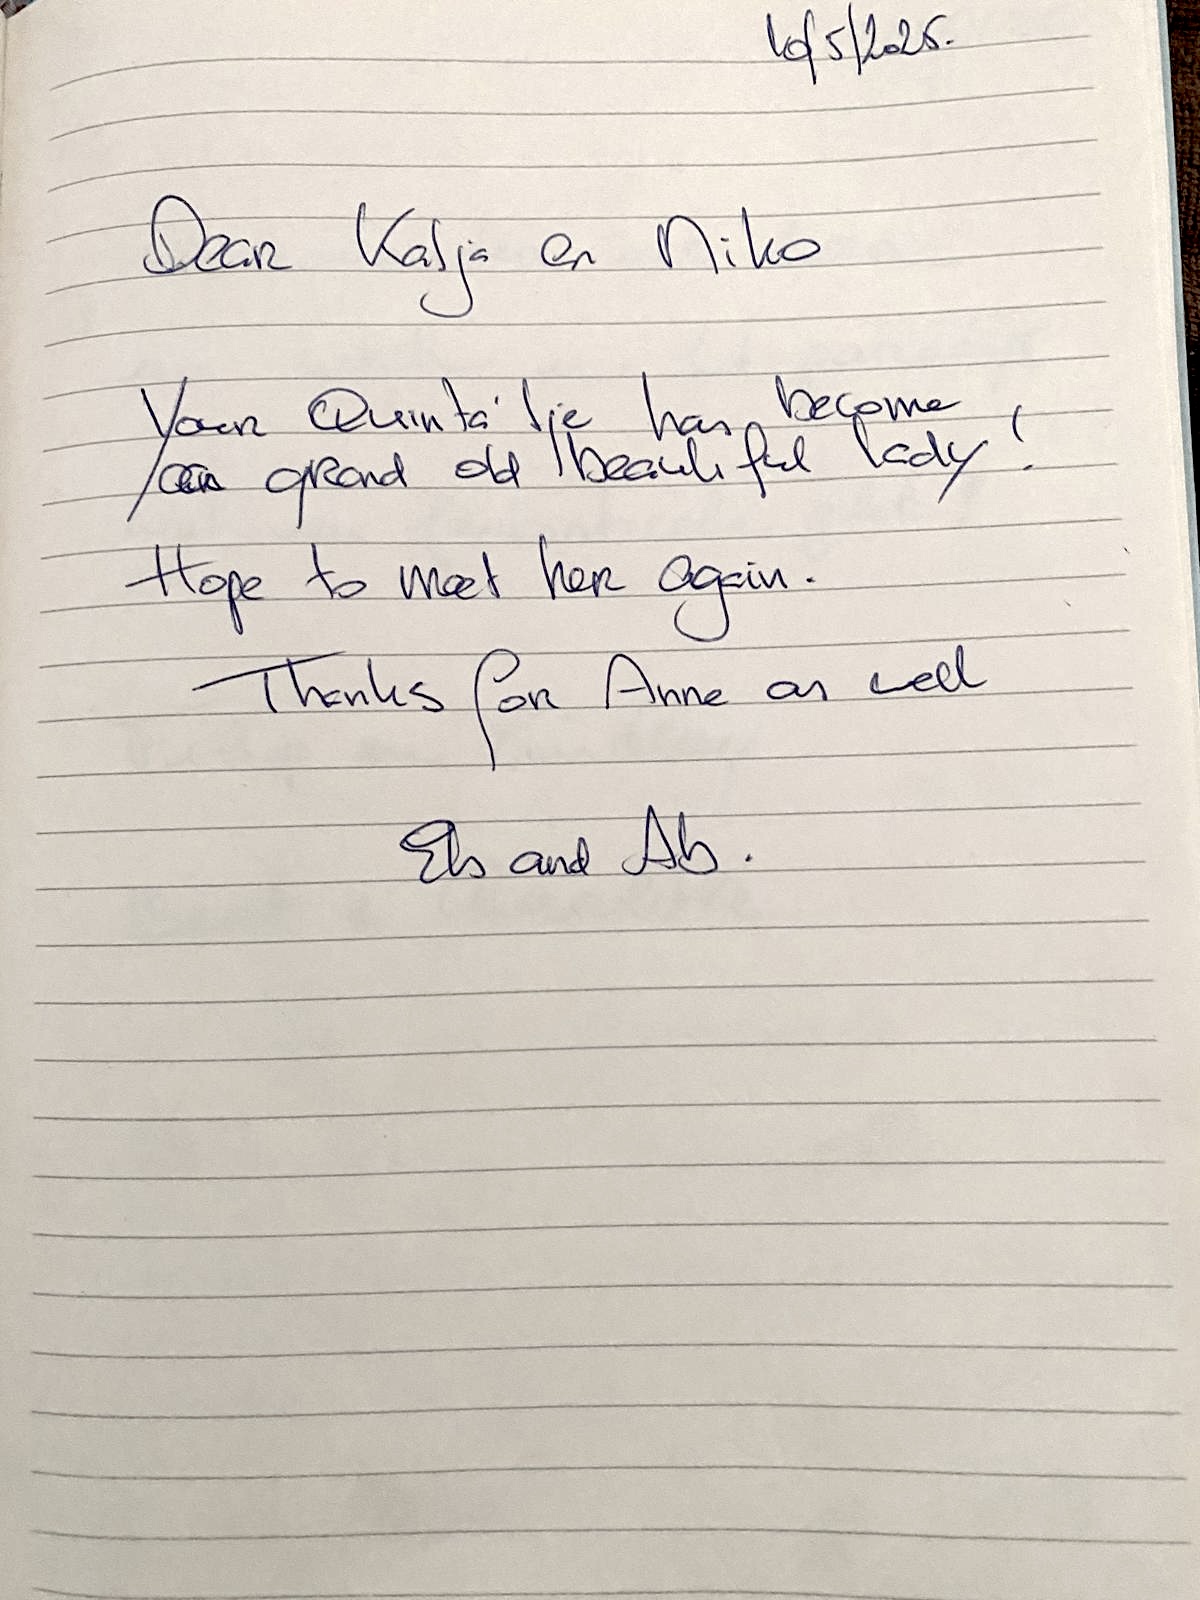 10/5/2025.
Dear Katja en Niko
Your Quinta'tje has become
a grand old beautiful lady!
Hope to meet her again.
Thanks for Anne as well
Els and Ab.